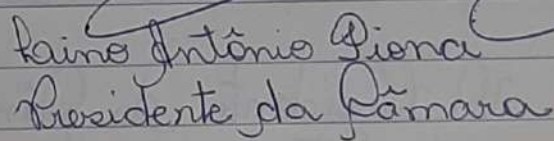 Raino Antônio Piona
Presidente da Câmara